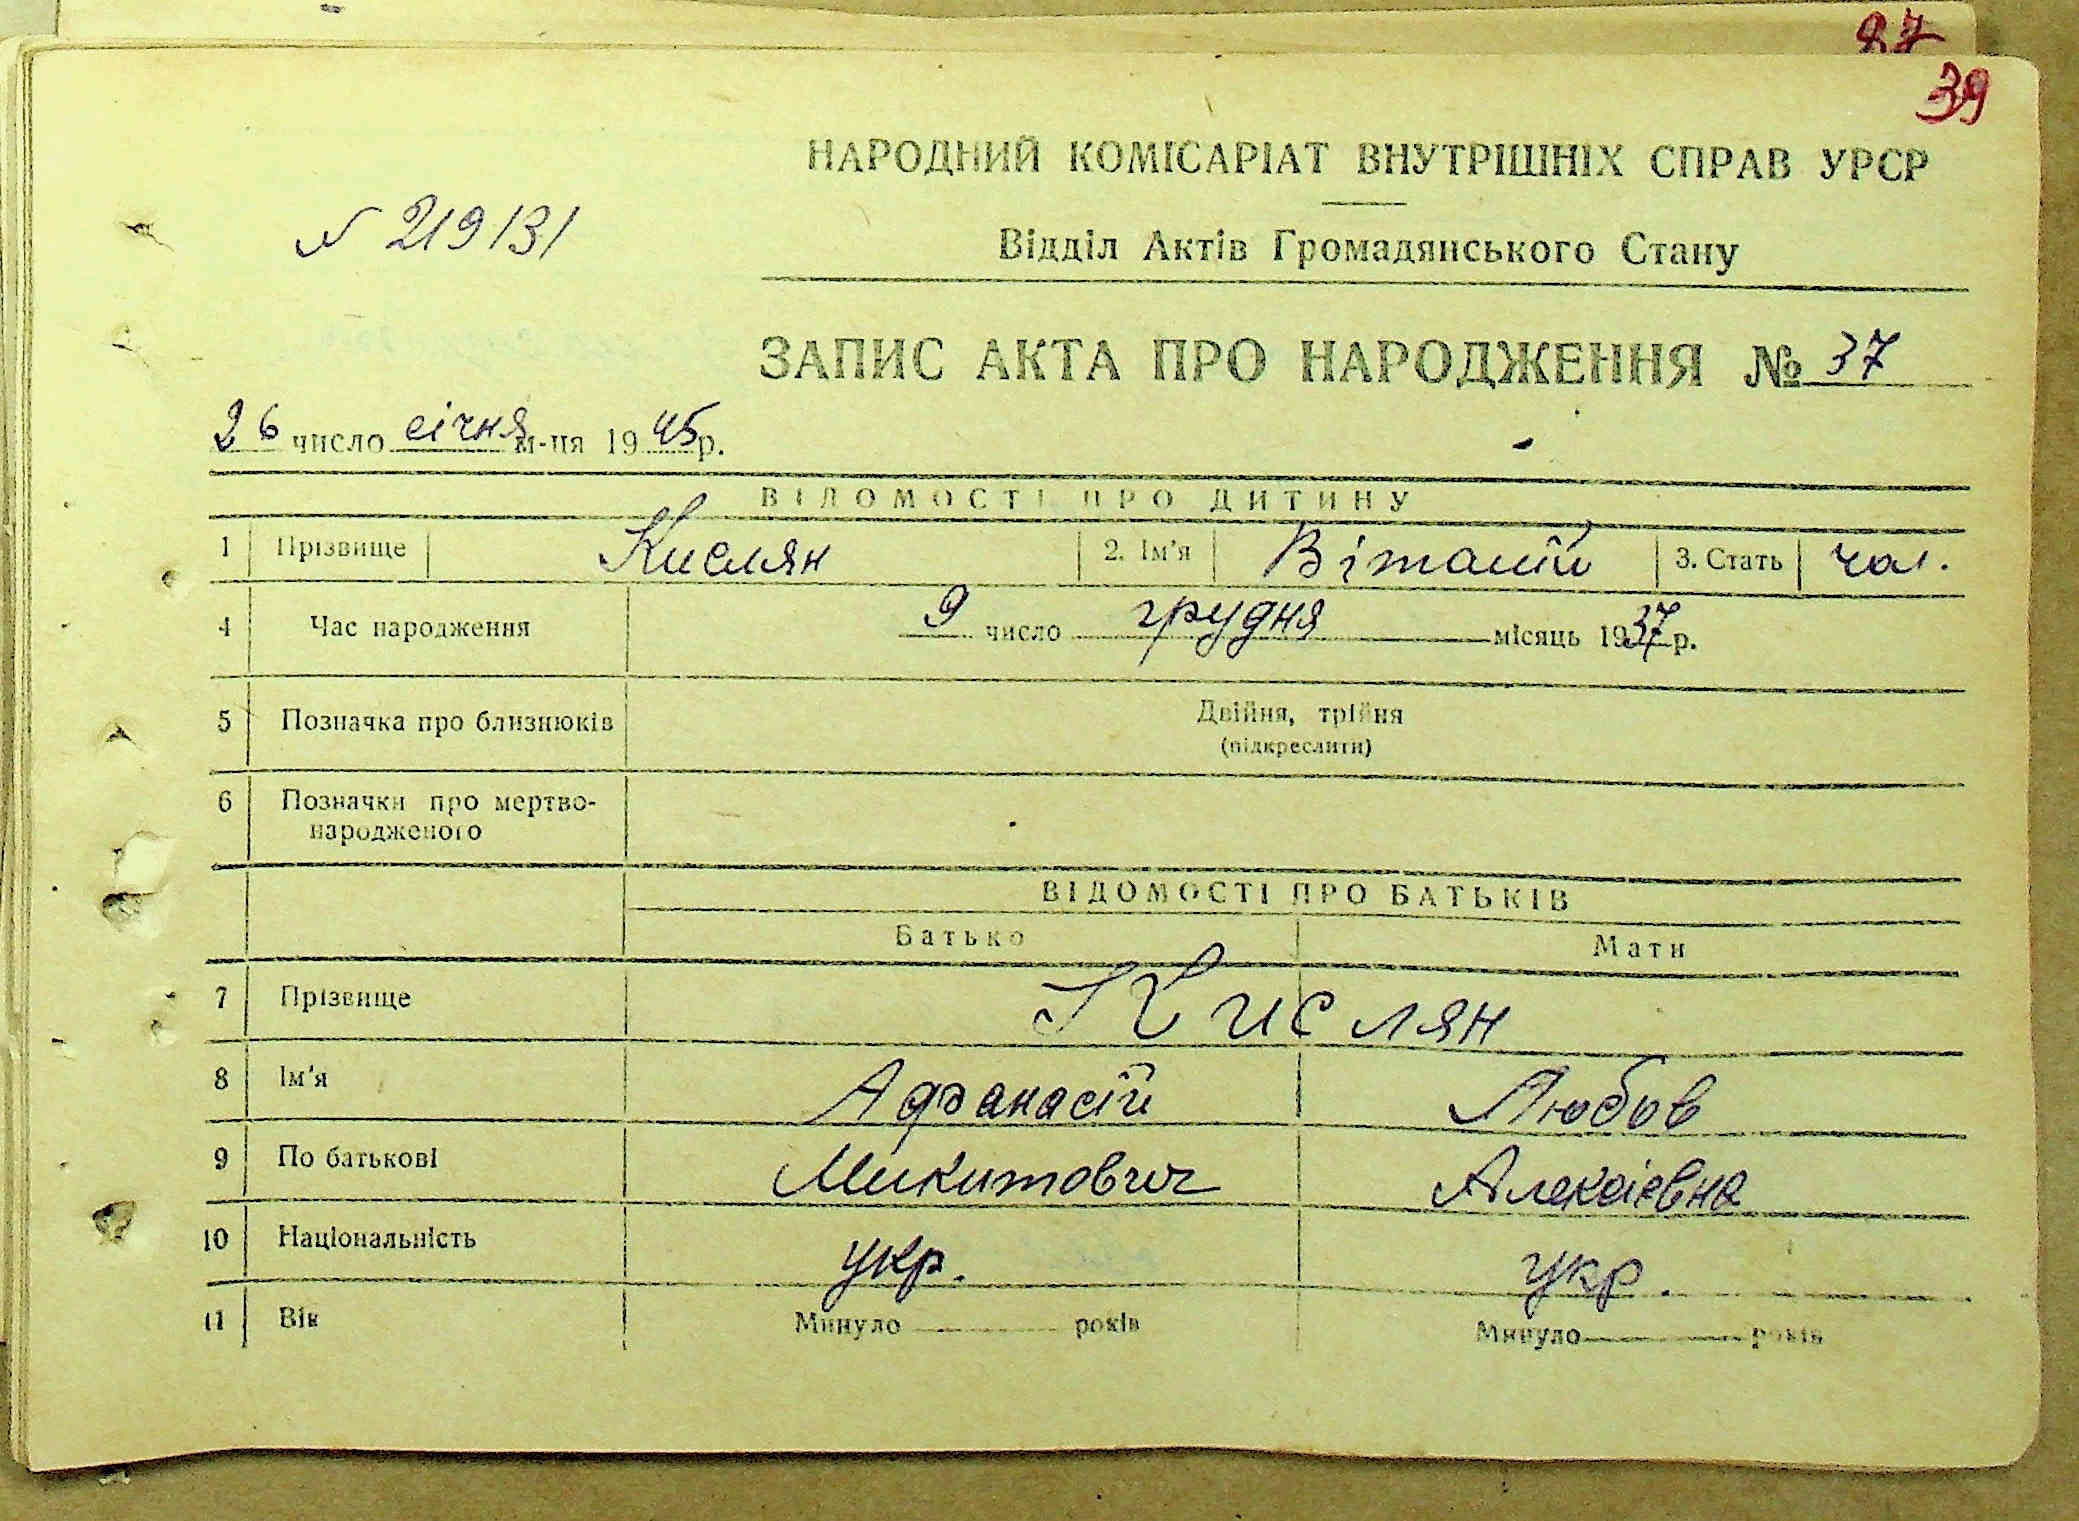 87
39
НАРОДНИЙ КОМІСАРІАТ ВНУТРІШНІХ СПРАВ УРСР
№ 219131
Відділ Актів Громадянського Стану
ЗАПИС АКТА ПРО НАРОДЖЕННЯ № 37
26 число січня м-ця 1945 р.
ВІДОМОСТІ ПРО ДИТИНУ
1 Прізвище Кислян 2. Ім'я Віталій 3. Стать чол.
4 Час народження 9 число грудня місяць 1937 р.
5 Позначка про близнюків Двійня, трійня
(підкреслити)
6 Позначки про мертво-
народженого
ВІДОМОСТІ ПРО БАТЬКІВ
Батько Мати
7 Прізвище Кислян
8 Ім'я Афанасій Любов
9 По батькові Микитович Алексієвна
10 Національність укр. укр.
11 Вік Минуло років Минуло років